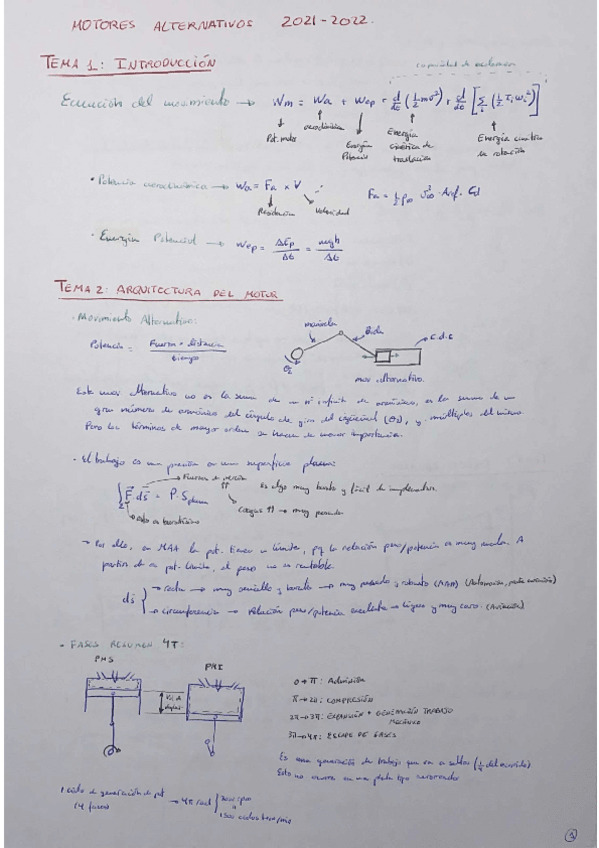 MOTORES ALTERNATIVOS 2021-2022.
TEMA 1: INTRODUCCIÓN
capacidad de aceleración
Ecuación del movimiento → Wm = Wa + Wep + d/dt (1/2 mv²) + d/dt [Σi (1/2 Ii wi²)]
Pot. motor
aerodinámica
Energía Potencial
Energía cinética de traslación
Energía cinética de rotación
· Potencia aerodinámica → Wa = Fa × V
Resistencia
Velocidad
Fa = 1/2 ρ∞ v∞² · Aref · Cd
· Energía Potencial → Wep = ΔEp/Δt = mgh/Δt
TEMA 2: ARQUITECTURA DEL MOTOR
· Movimiento Alternativo:
Potencia = Fuerza · distancia / tiempo
manivela
Biela
mov alternativo.
Este mov alternativo no es la suma de un nº infinito de armónicos, es la suma de un
gran número de armónicos del ángulo de giro del cigüeñal (θ), y múltiplos del mismo
Pero los términos de mayor orden se hacen de menor importancia.
· El trabajo es una presión en una superficie plana:
Fuerzas de presión
∫ F ds = P · S plana
Es algo muy barato y fácil de implementar.
Cargas ↑↑ → muy pesado
→ Por ello, en MAA la pot. tiene un límite, pq la relación peso/potencia es muy mala. A
partir de una pot. límite, el peso no es rentable.
ds
→ recta → muy sencillo y barato → muy pesado y robusto (Automoción,
→ circunferencia → Relación peso/potencia excelente → ligera y muy caro. (Aviación)
· FASES RESUMEN 4T:
PMS
PMI
0→π: Admisión
π→2π: COMPRESIÓN
2π→3π: EXPANSIÓN + GENERACIÓN TRABAJO
MECÁNICO
3π→4π: ESCAPE DE GASES
Es una generación de trabajo que va a saltos
Esto no ocurre en una
1 ciclo de generación de pot
(4 fases)
→ 4π rad
3000 rpm
1500 ciclos
1